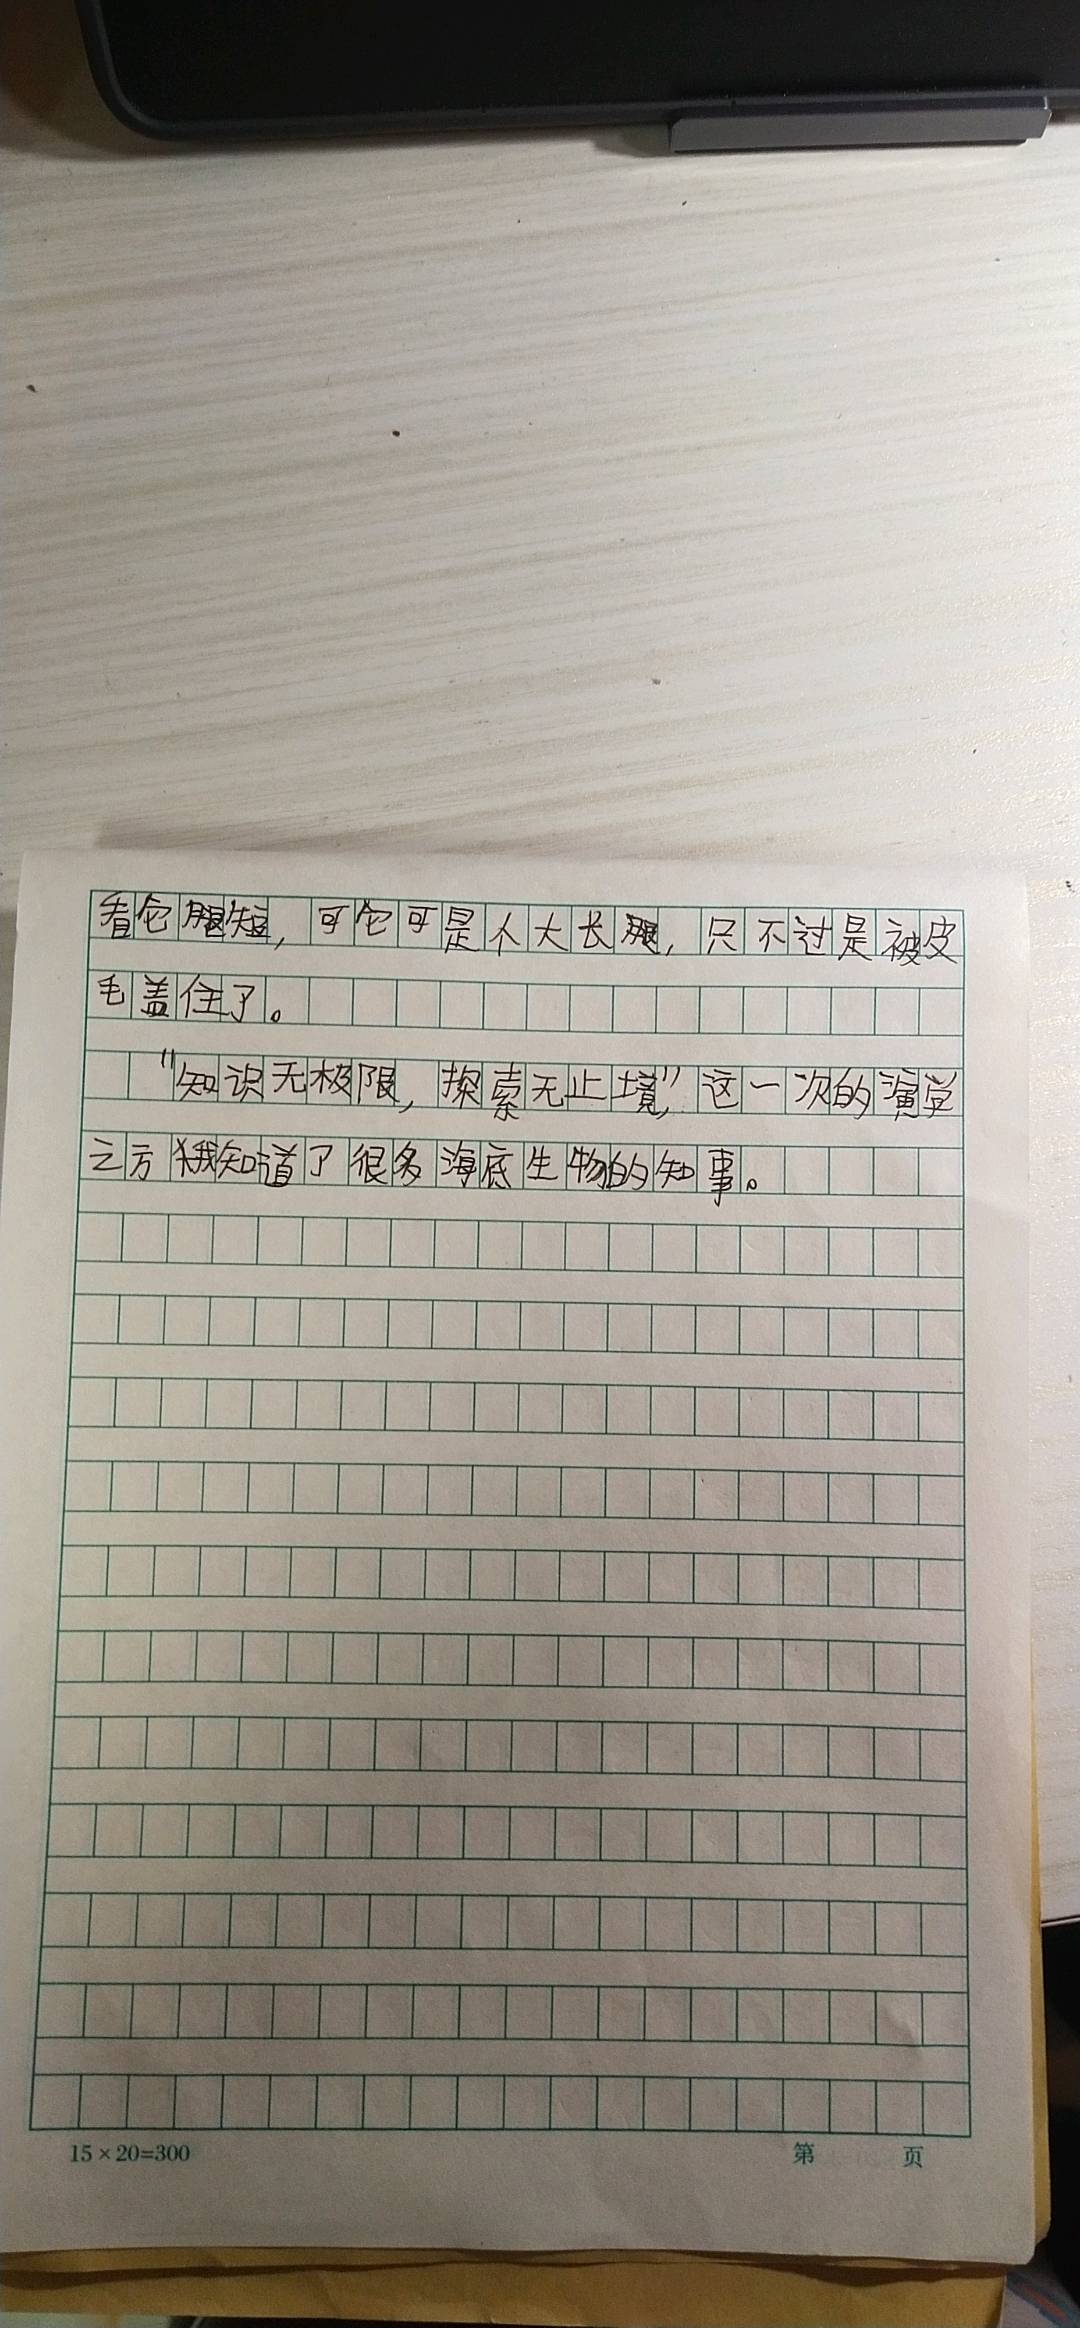 看它腿短，可它可是个大长腿，只不过是被皮
毛盖住了。
“知识无极限，探索无止境”，这一次的演学
之方我知道了很多海底生物的知事。
15×20=300
第 页